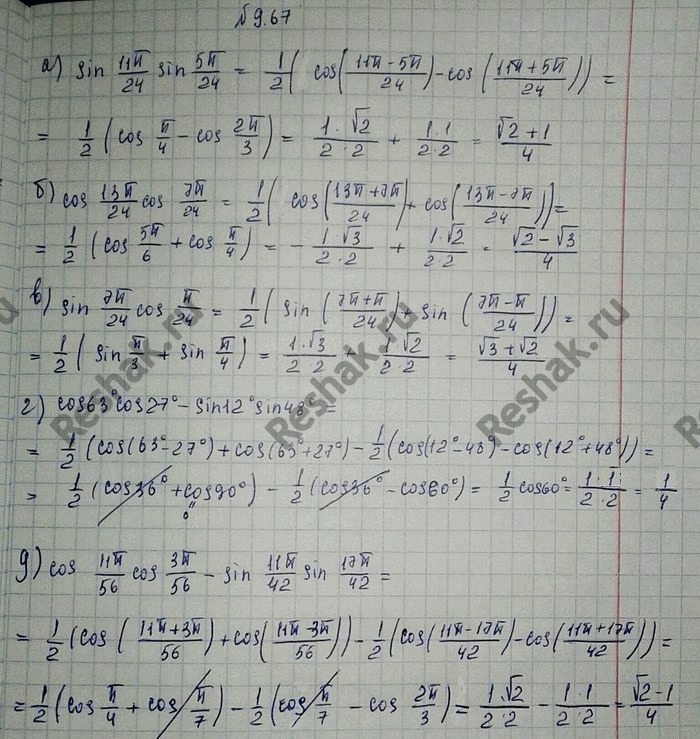 №9.67
а) sin 11π/24 sin 5π/24 = 1/2( cos((11π-5π)/24)-cos((11π+5π)/24)) =
= 1/2 (cos π/4 - cos 2π/3) = 1·√2/2·2 + 1·1/2·2 = (√2+1)/4
б) cos 13π/24 cos 7π/24 = 1/2( cos((13π+7π)/24)+ cos((13π-7π)/24))=
= 1/2 (cos 5π/6 + cos π/4) = - 1·√3/2·2 + 1·√2/2·2 = (√2-√3)/4
в) sin 7π/24 cos π/24 = 1/2( sin ((7π+π)/24)+ sin ((7π-π)/24)) =
= 1/2 ( sin π/3 + sin π/4) = 1·√3/2·2 + 1·√2/2·2 = (√3+√2)/4
г) cos63°cos27°-sin12°sin48°=
= 1/2(cos(63°-27°)+cos(63°+27°)-1/2(cos(12°-48°)-cos(12°+48°))=
= 1/2(cos36°+cos90°) - 1/2(cos36°-cos60°)= 1/2 cos60°= 1·1/2·2 = 1/4
0
д) cos 11π/56 cos 3π/56 - sin 11π/42 sin 17π/42 =
= 1/2 (cos ((11π+3π)/56)+cos((11π-3π)/56))-1/2(cos((11π-17π)/42)-cos((11π+17π)/42))=
=1/2(cos π/4 + cos π/7) - 1/2(cos π/7 - cos 2π/3)= 1·√2/2·2 - 1·1/2·2 = (√2-1)/4
Reshak.ru
Reshak.ru